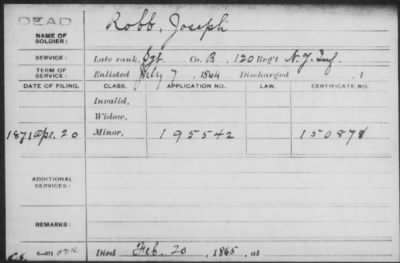 DEAD
NAME OF SOLDIER: Robb, Joseph
SERVICE: Late rank, Sgt. Co. B, 120 Reg't N.Y. Inf.
TERM OF SERVICE: Enlisted July 7, 1864 Discharged , 1
DATE OF FILING. CLASS. APPLICATION NO. LAW. CERTIFICATE NO.
Invalid,
Widow,
1871 Apr. 20 Minor, 195542 150878
ADDITIONAL SERVICES:
REMARKS:
Died Feb. 20, 1865, at